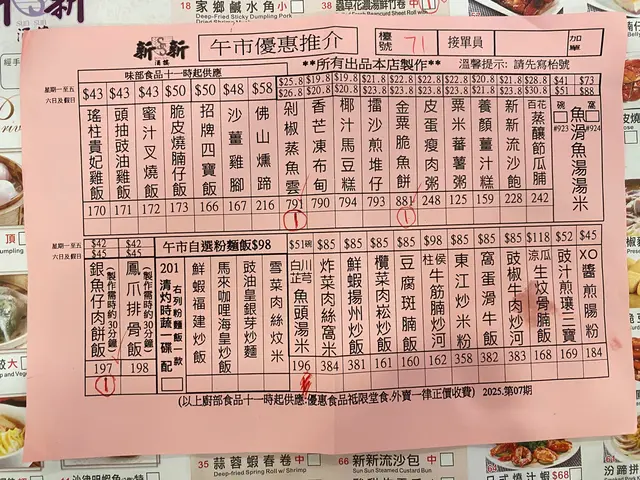 18 家鄉鹹水角 小
Deep-Fried Sticky Dumpling Pork
38 蟲草花濃湯鮮竹卷 中
新 SUN SUN 新
午市優惠推介
檯號 71 接單員
**所有出品本店製作**
溫馨提示: 請先寫枱號
味部食品十一時起供應
星期一至五 $43 $43 $43 $50 $50 $48 $58 $25.8 $19.8 $19.8 $21.8 $22.8 $22.8 $22.8 $20.8 $23.8 $41 $73
六日及假日 $26.8 $20.8 $20.8 $51 $88
瑤柱貴妃雞飯 170
頭抽豉油雞飯 171
蜜汁叉燒飯 172
脆皮燒腩仔飯 173
招牌四寶飯 166
沙薑雞腳 167
佛山燻蹄 216
剁椒蒸魚雲 791 1
香芒凍布甸 790
椰汁馬豆糕 794
擂沙煎堆仔 793
金粟脆魚餅 881 1
皮蛋瘦肉粥 248
粟米蕃薯粥 125
養顏薑汁糕 159
新新流沙飽 228
百花蒸釀節瓜脯 242
魚滑魚湯湯米 碗 #923 窩 #924
星期一至五 $42 $42 午市自選粉麵飯$98 $51碗 $85 $85 $85 $85 $98 $85 $85 $85 $118 $52 $45
六日及假日 $45 $45
銀魚仔肉餅飯 (製作需時約30分鐘) 197 1
鳳爪排骨飯 (製作需時約30分鐘) 198
201 清灼時蔬一碟 右列粉麵飯一款配
鮮蝦福建炒飯
馬來咖哩海皇炒飯
豉油皇銀芽炒麵
雪菜肉絲炆米
川芎白芷魚頭湯米 196
炸菜肉絲窩米 384
鮮蝦揚州炒飯 381
欖菜肉松炒飯 161
豆腐斑腩飯 160
柱侯牛筋腩炒河 162
東江炒米粉 358
窩蛋滑牛飯 382
豉椒牛肉炒河 383
涼瓜生炆骨腩飯 168
豉汁煎瓖三寶 169
XO醬煎腸粉 184
(以上廚部食品十一時起供應.優惠食品祗限堂食.外賣一律正價收費) 2025.第07期
35 蒜蓉蝦春卷 中
Deep-fried Spring Roll w/ Shrimp
66 新新流沙包 中
Sun Sun Steamed Custard Bun